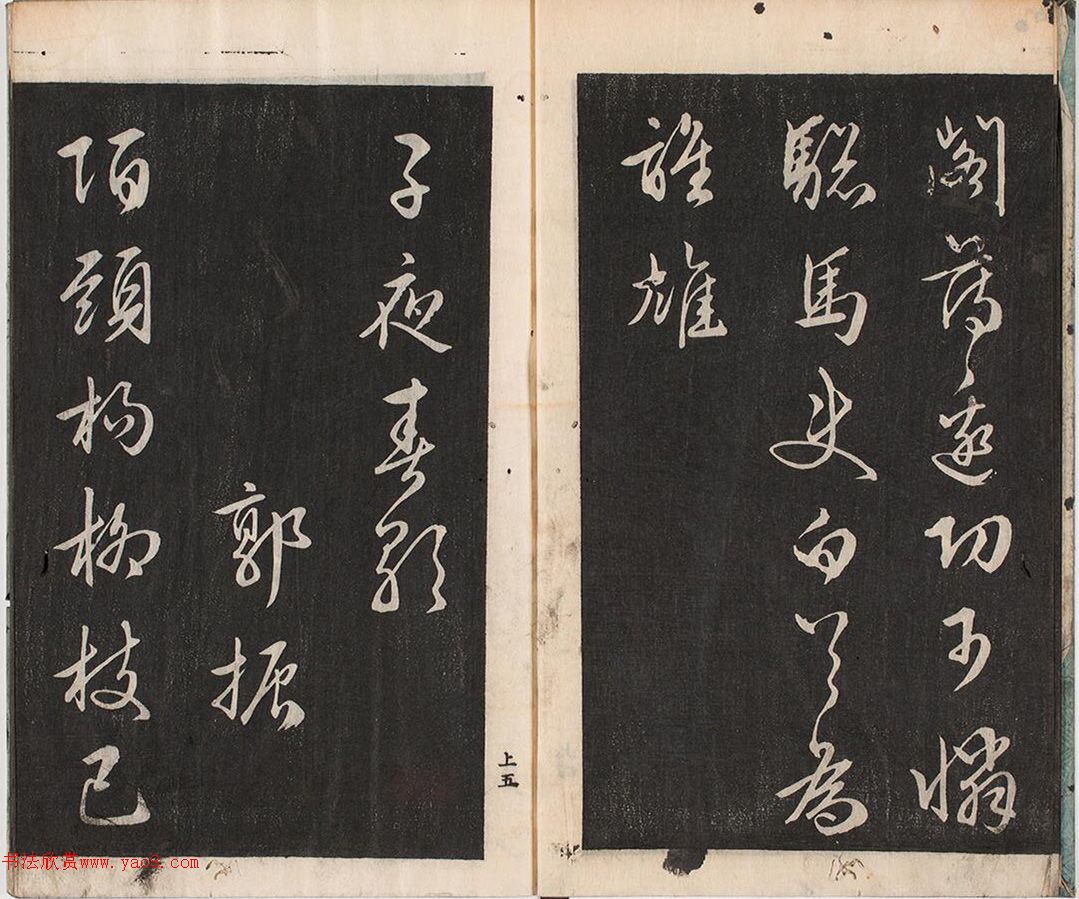 閣薄邊功可憐
驄馬史白首為
誰雄
上五
子夜春歌
郭振
陌頭楊柳枝已
书法欣赏www.yac8.com